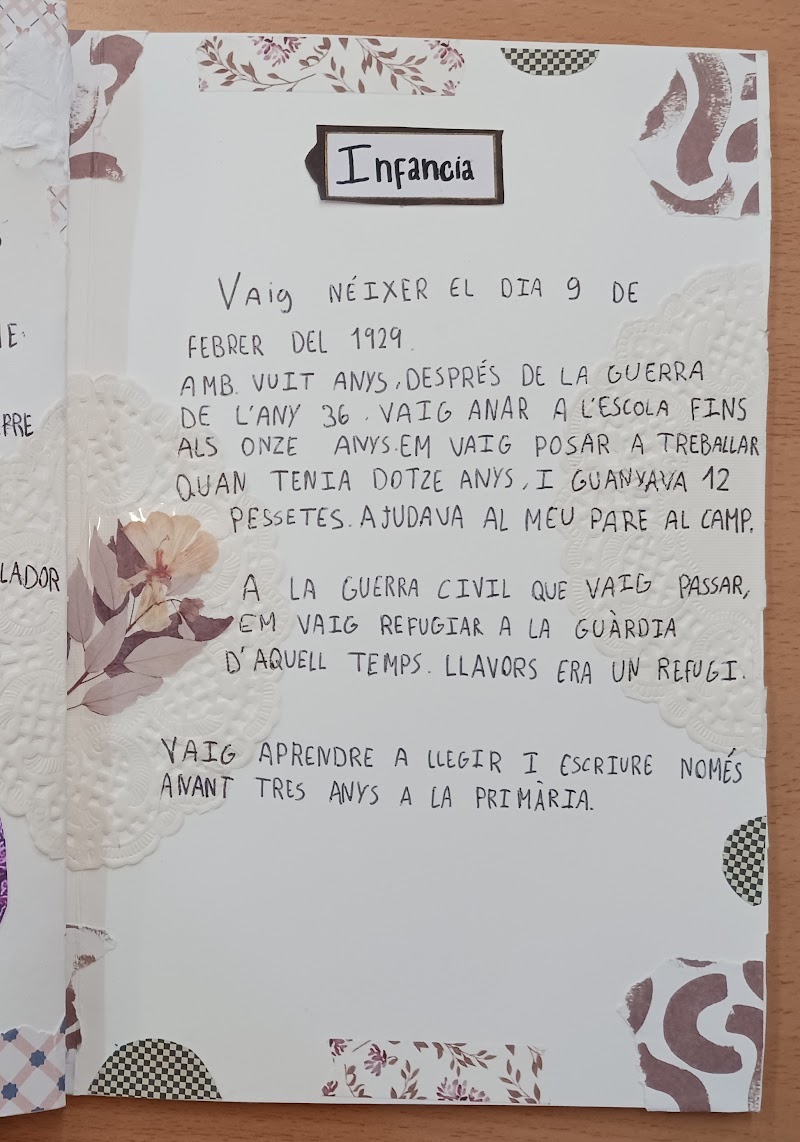 Infancia
Vaig NÉIXER EL DIA 9 DE
FEBRER DEL 1929.
AMB VUIT ANYS, DESPRÉS DE LA GUERRA
DE L'ANY 36. VAIG ANAR A L'ESCOLA FINS
ALS ONZE ANYS. EM VAIG POSAR A TREBALLAR
QUAN TENIA DOTZE ANYS, I GUANYAVA 12
PESSETES. AJUDAVA AL MEU PARE AL CAMP.
A LA GUERRA CIVIL QUE VAIG PASSAR,
EM VAIG REFUGIAR A LA GUÀRDIA
D'AQUELL TEMPS. LLAVORS ERA UN REFUGI.
VAIG APRENDRE A LLEGIR I ESCRIURE NOMÉS
ANANT TRES ANYS A LA PRIMÀRIA.